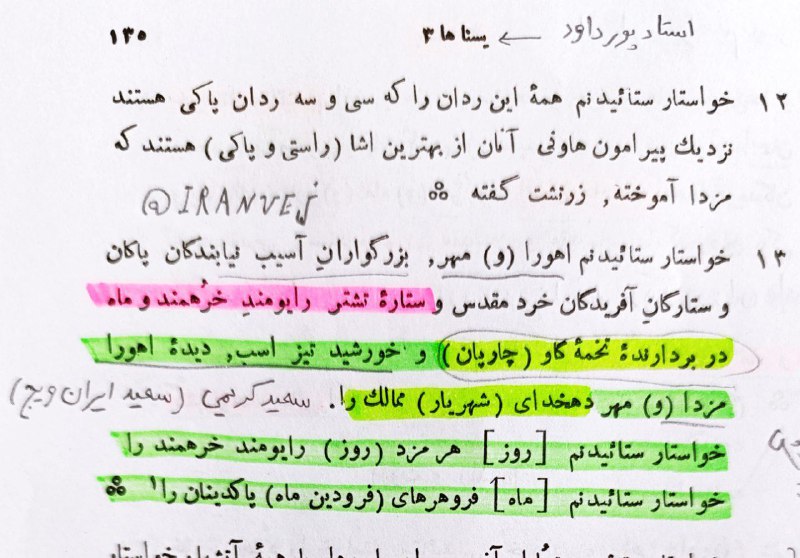 استاد پورداود ← یسنا ها ۳ ۱۳۵
۱۲ خواستار ستائیدنم همهٔ این ردان را که سی و سه ردان پاکی هستند
نزدیك پیرامون هاونی آنان از بهترین اشا (راستی و پاکی) هستند که
مزدا آموخته, زرتشت گفته ஃ
@IRANVEj
۱۳ خواستار ستائیدنم اهورا (و) مهر, بزرگوارانِ آسیب نیابندگان پاکان
و ستارگانِ آفریدگان خرد مقدس و ستارهٔ تشتر رایومندِ خرُهمند و ماه
در بردارندهٔ تخمهٔ گاو (چارپان) و خورشید تیز اسب, دیدهٔ اهورا
مزدا (و) مهر دهخدای (شهریار) ممالك را. سعید کریمی (سعید ایران ویج)
خواستار ستائیدنم [روز] هرمزد (روز) رایومند خرهمند را
خواستار ستائیدنم [ماه] فروهرهای (فرودین ماه) پاکدینان را۱ ஃ